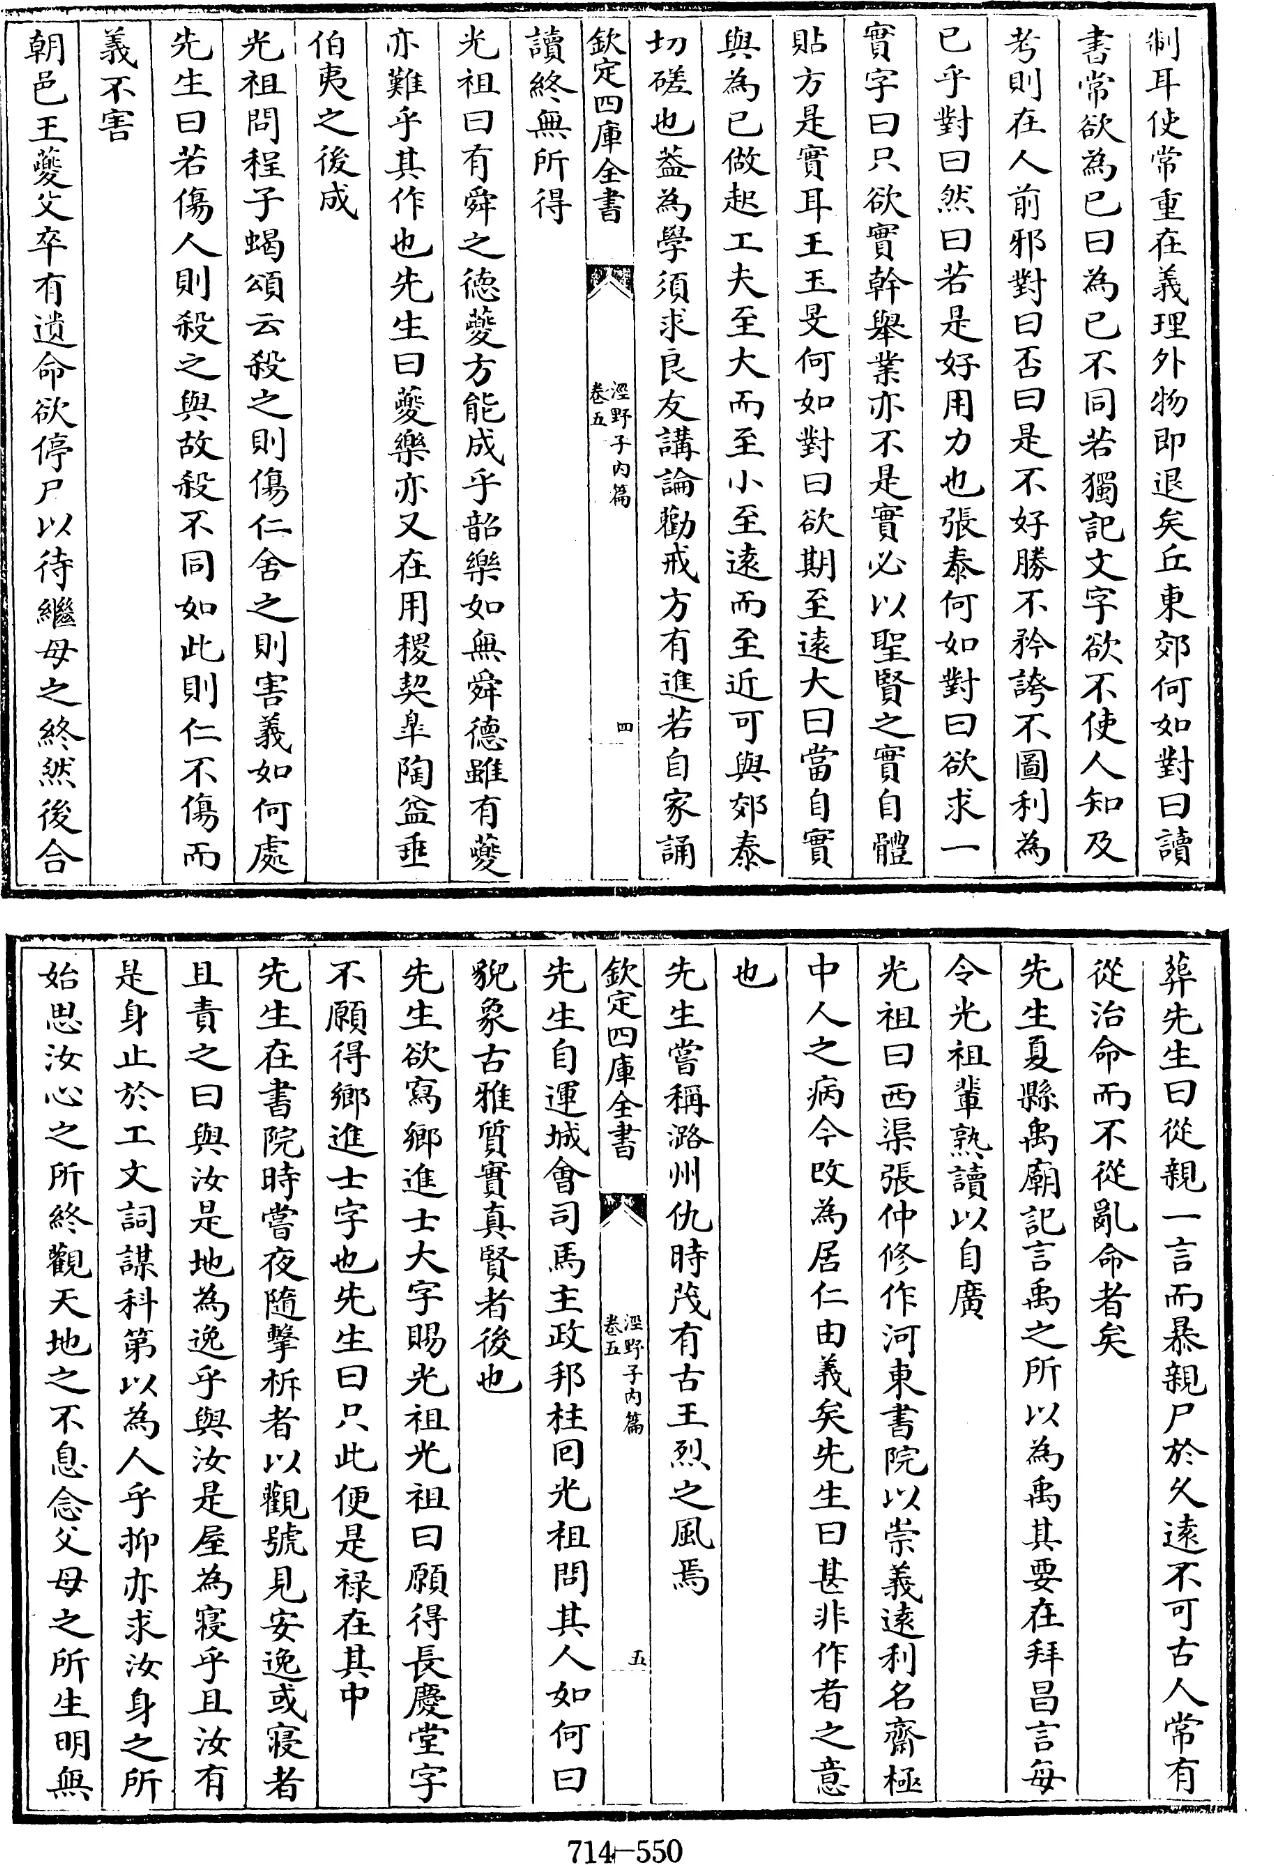 制耳使常重在義理外物即退矣丘東郊何如對曰讀
書常欲為已曰為已不同若獨記文字欲不使人知及
考則在人前邪對曰否曰是不好勝不矜誇不圖利為
已乎對曰然曰若是好用力也張泰何如對曰欲求一
實字曰只欲實幹舉業亦不是實必以聖賢之實自體
貼方是實耳王玉旻何如對曰欲期至遠大曰當自實
與為已做起工夫至大而至小至遠而至近可與郊泰
切磋也葢為學須求良友講論勸戒方有進若自家誦
欽定四庫全書
涇野子內篇
卷五
四
讀終無所得
光祖曰有舜之德夔方能成乎韶樂如無舜德雖有夔
亦難乎其作也先生曰夔樂亦又在用稷契臯陶益垂
伯夷之後成
光祖問程子蝎頌云殺之則傷仁舍之則害義如何處
先生曰若傷人則殺之與故殺不同如此則仁不傷而
義不害
朝邑王夔父卒有遺命欲停尸以待繼母之終然後合
葬先生曰從親一言而暴親尸於久遠不可古人常有
從治命而不從亂命者矣
先生夏縣禹廟記言禹之所以為禹其要在拜昌言每
令光祖輩熟讀以自廣
光祖曰西渠張仲修作河東書院以崇義遠利名齋極
中人之病今改為居仁由義矣先生曰甚非作者之意
也
先生嘗稱潞州仇時茂有古王烈之風焉
欽定四庫全書
涇野子內篇
卷五
五
先生自運城會司馬主政邦柱囘光祖問其人如何曰
貌象古雅質實真賢者後也
先生欲寫鄉進士大字賜光祖光祖曰願得長慶堂字
不願得鄉進士字也先生曰只此便是禄在其中
先生在書院時嘗夜隨擊柝者以觀號見安逸或寢者
且責之曰與汝是地為逸乎與汝是屋為寢乎且汝有
是身止於工文詞謀科第以為人乎抑亦求汝身之所
始思汝心之所終觀天地之不息念父母之所生明無
714-550